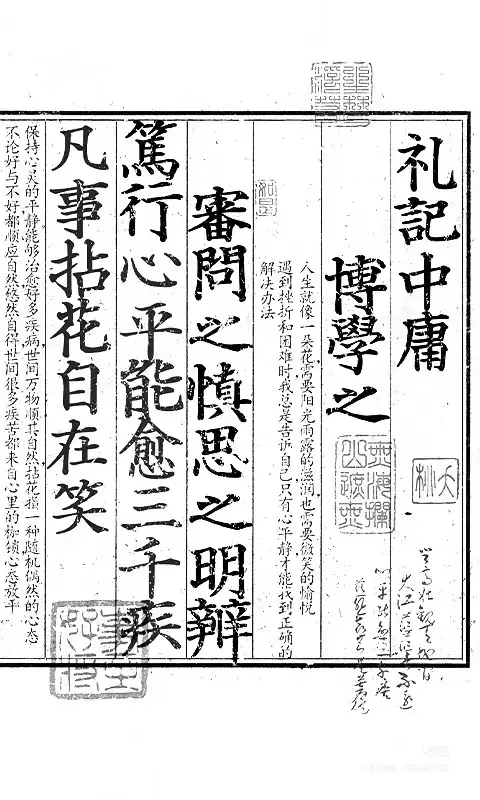 礼記中庸
博學之
人生就像一朵花需要阳光雨露的滋润也需要微笑的愉悦
遇到挫折和困难时我总是告诉自己只有心平静才能找到正确的
解决办法
審問之慎思之明辨
篤行心平能愈三千疾
凡事拈花自在笑
保持心灵的平静能够治愈好多疾病世间万物顺其自然拈花指一种随机偶然的心态
不论好与不好都顺应自然悠然自得世间很多疾苦都来自心里的枷锁心态放平